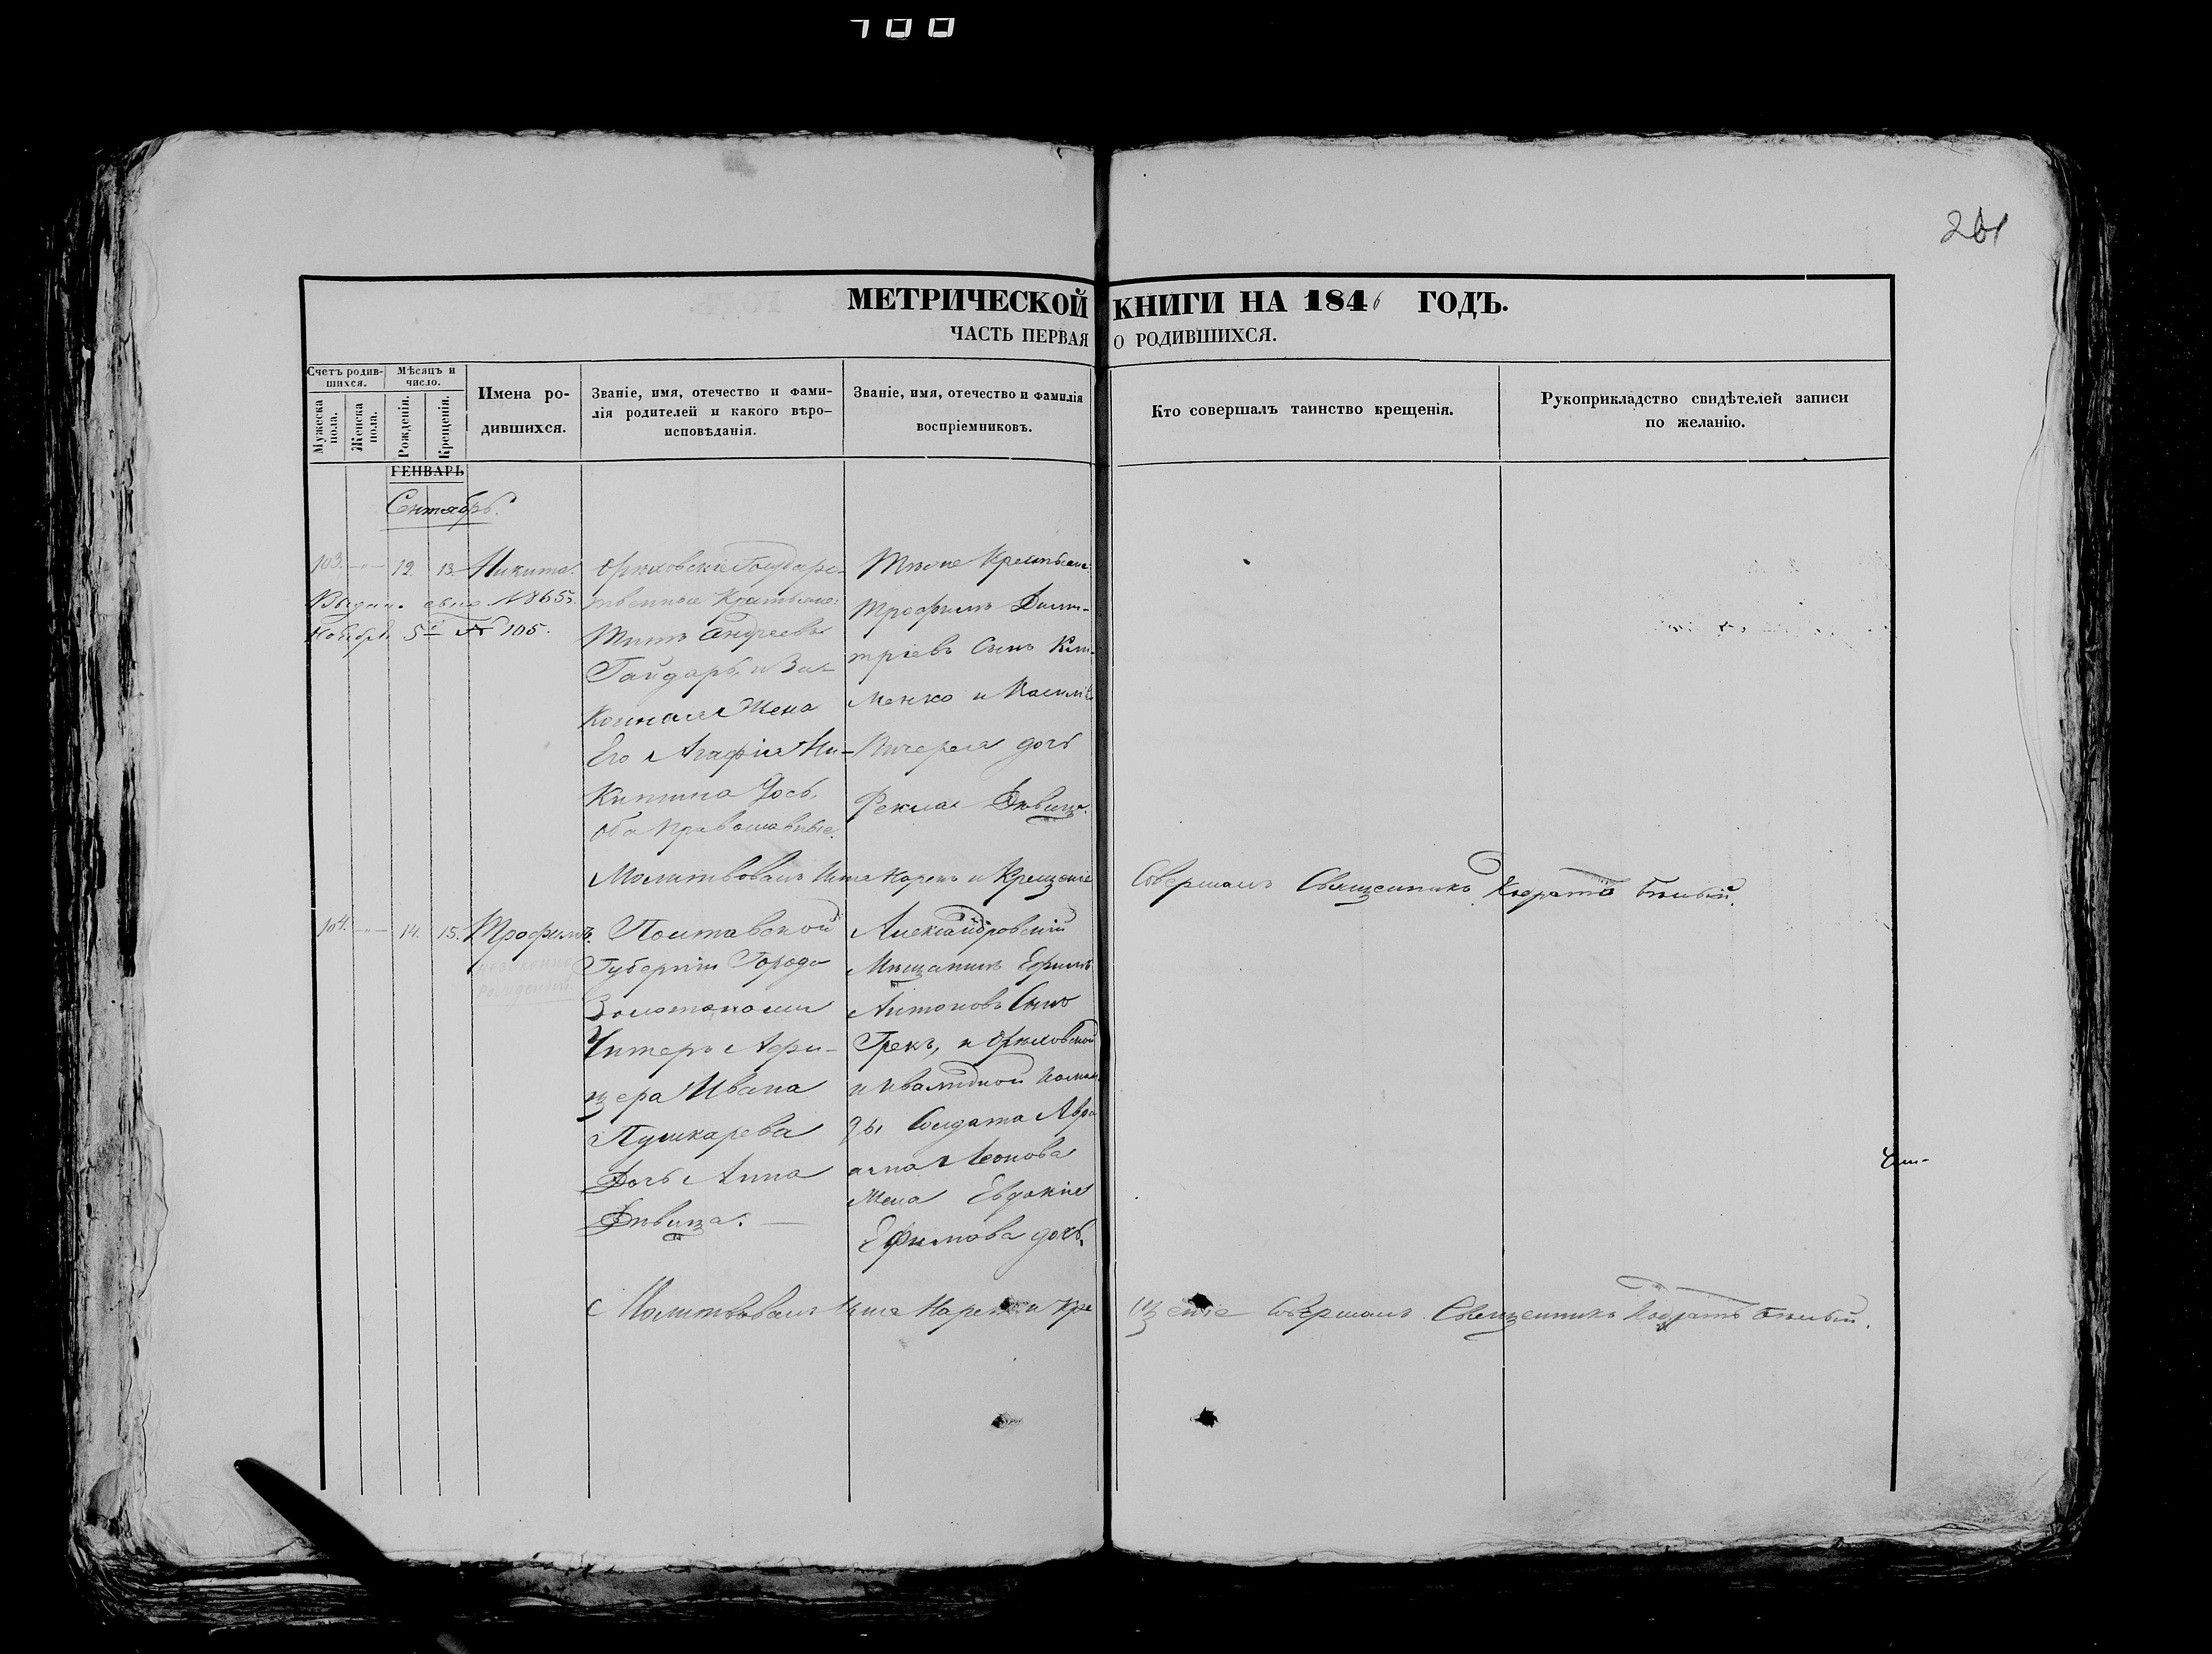 100
261
МЕТРИЧЕСКОЙ КНИГИ НА 1846 ГОДЪ.
ЧАСТЬ ПЕРВАЯ О РОДИВШИХСЯ.
Счетъ родив-
шихся.
Мужеска пола.
Женска пола.
Мѣсяцъ и
число.
Рожденія.
Крещенія.
Имена ро-
дившихся.
Званіе, имя, отечество и фами-
лія родителей и какого вѣро-
исповѣданія.
Званіе, имя, отечество и фамилія
воспріемниковъ.
Кто совершалъ таинство крещенія.
Рукоприкладство свидѣтелей записи
по желанію.
ГЕНВАРЬ
Сентябрь.
103. -"- 12. 13. Никита.
1865.
Ноября 5е № 105.
Орѣховскіе Государс-
твенные Крестьяне:
Титъ Андреевъ
Гайдарь, и За-
конная Жена
Его Агафія Ни-
китина Дочь,
Оба православные.
Тѣже Крестьяне
Трофимъ Дими-
тріевъ Сынъ Кли-
менко и
дочь
Фекла Дѣвица.
Молитвовалъ Имя Нарекъ и Крещеніе Совершалъ Священникъ Кодратъ Бѣлый.
104. -"- 14. 15. Трофимъ.
незаконно
рожденный
Полтавской
Губерніи Города
Золотоноши
Унтеръ Афи-
цера Ивана
Пушкарева
Дочь Анна
Дѣвица. —
Александровскій
Мѣщанинъ Ефимъ
Антоновъ Сынъ
Грекъ, и Орѣховской
инвалидной Коман
ды Солдата
Леонова
Жена Евдокія
Ефимова дочь.
Молитвовалъ Имя Нарекъ и Кре
щеніе Совершалъ Священникъ Кодратъ Бѣлый.